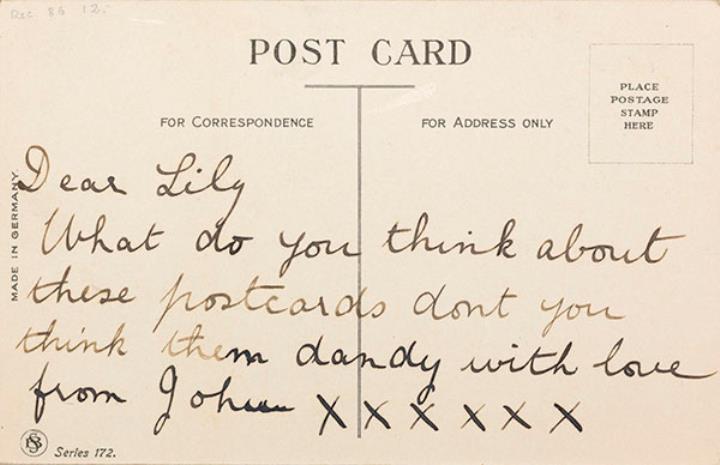 Rec 86 12.
POST CARD
FOR CORRESPONDENCE
FOR ADDRESS ONLY
PLACE
POSTAGE
STAMP
HERE
MADE IN GERMANY.
Dear Lily
What do you think about
these postcards dont you
think them dandy with love
from John X X X X X X
Series 172.